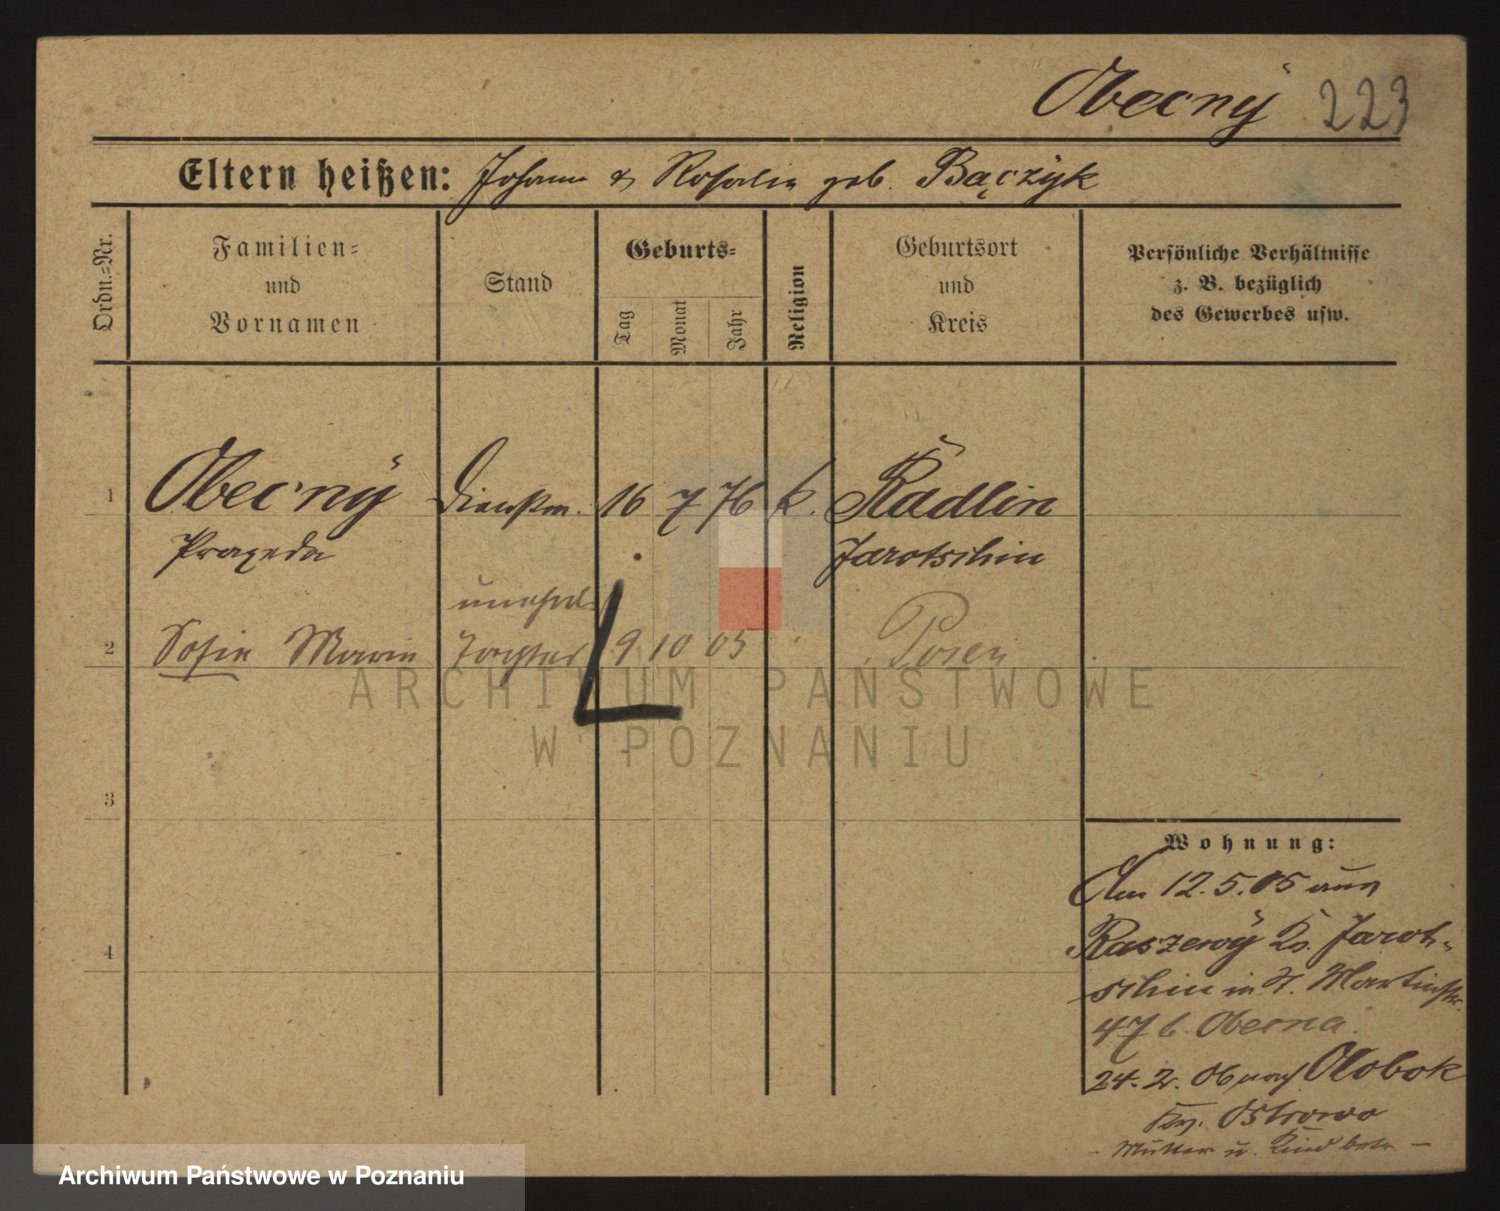 Obecnÿ 223
Eltern heißen: Johann & Rosalie geb. Bączÿk
Ordn.=Nr.
Familien=
und
Vornamen
Stand
Geburts=
Tag
Monat
Jahr
Religion
Geburtsort
und
Kreis
Persönliche Verhältnisse
z. B. bezüglich
des Gewerbes usw.
1 Obecnÿ Dienstm. 16 7 76 k. Radlin
Praxeda Jarotschin
unehel.
2 Sofie Marie Tochter 9 10 05 Posen
3
4
Wohnung:
Am 12.5.05 aus
Raszewÿ Ks. Jarot-
schin in St. Martinstr.
47 b. Obecna.
24. 2. 06 nach Olobok
Ostrowo
- Mutter u. Kind betr. -
ARCHIWUM PAŃSTWOWE
W POZNANIU
Archiwum Państwowe w Poznaniu